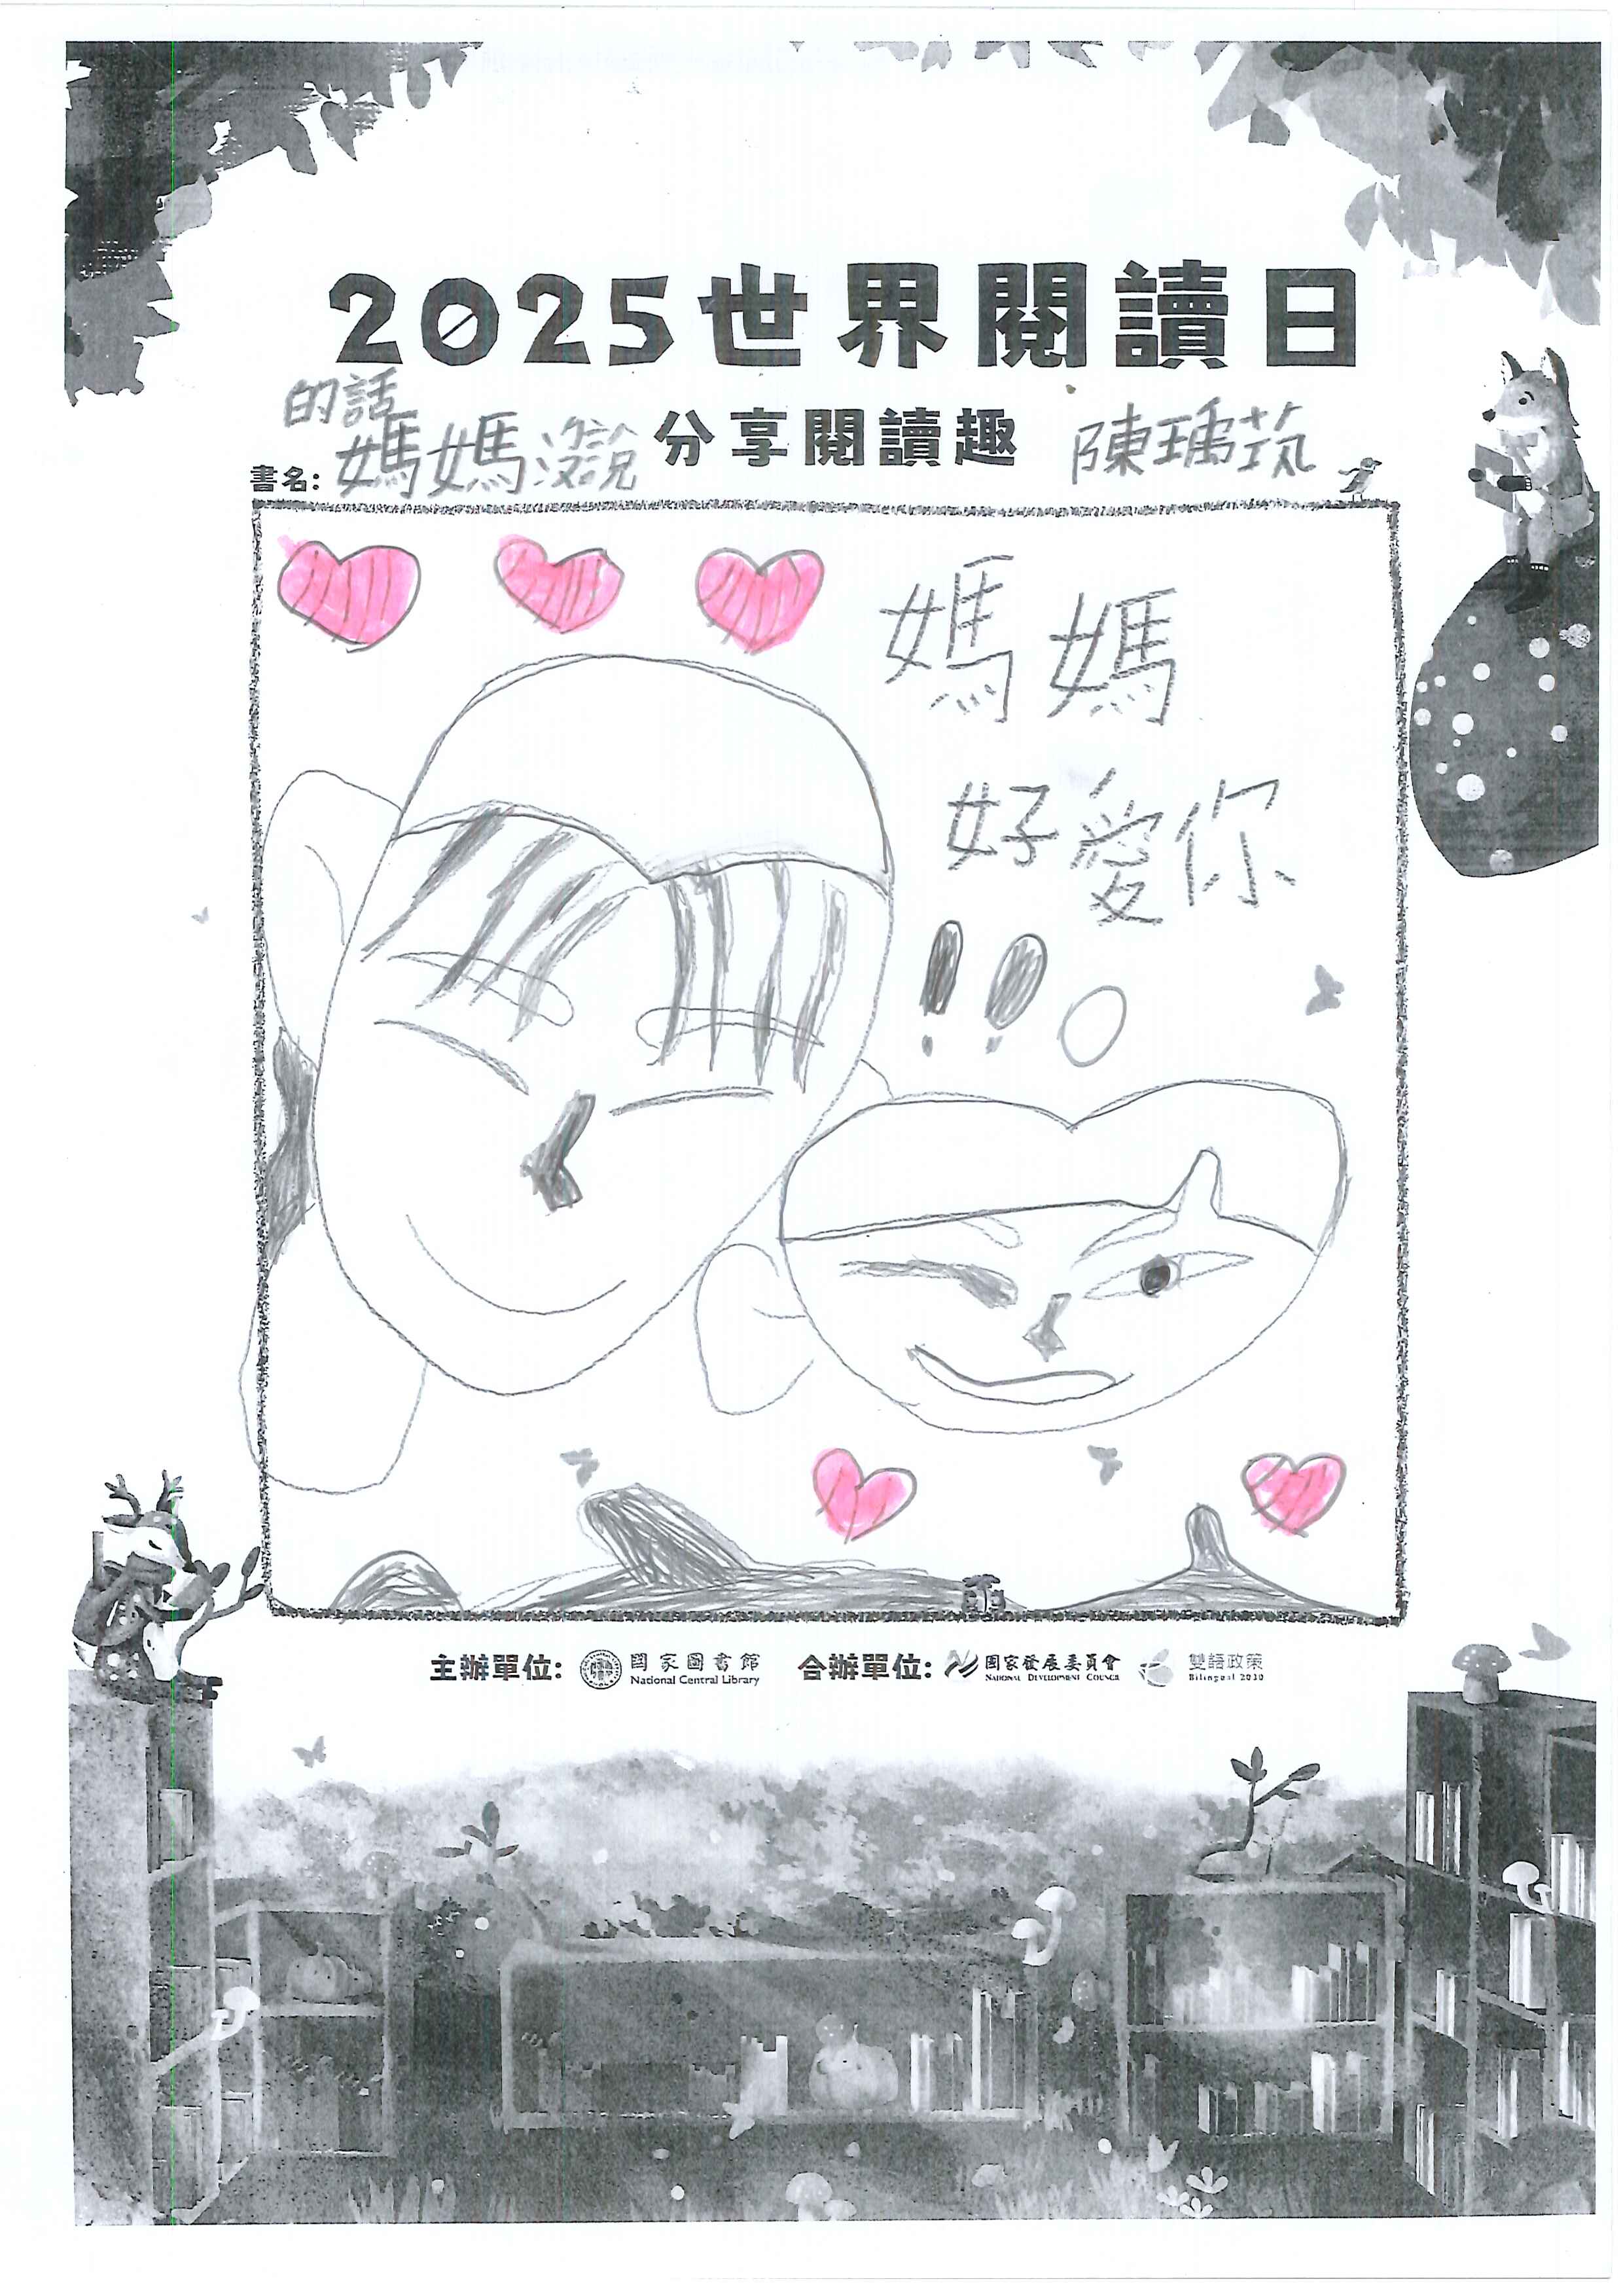 2025世界閱讀日
分享閱讀趣
的話
書名: 媽媽沒說
陳瑀芤
媽媽
好愛你
!!。
主辦單位: 國家圖書館 National Central Library 合辦單位: 國家發展委員會 National Development Council 雙語政策 Bilingual 2030